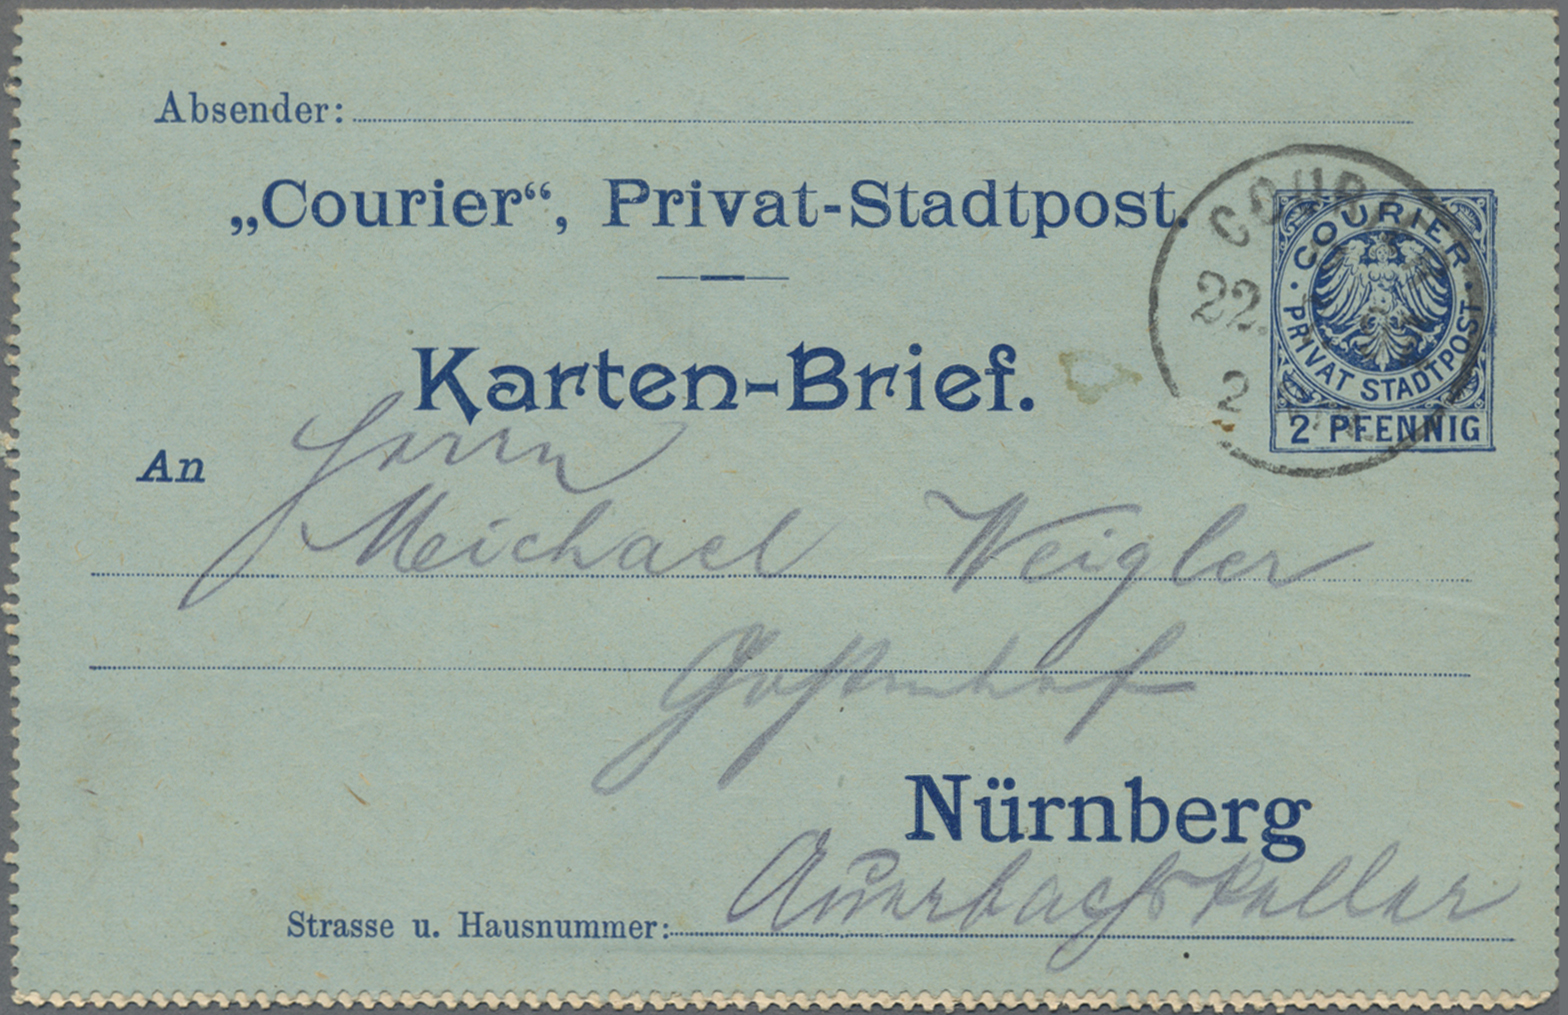 Absender:
„Courier“, Privat-Stadtpost.
COUR
22.
2
COURIER
PRIVAT STADTPOST
2 PFENNIG
Karten-Brief.
An Herrn
Meichael Weigler
Gostenhof
Nürnberg
Strasse u. Hausnummer: Auerbachskeller